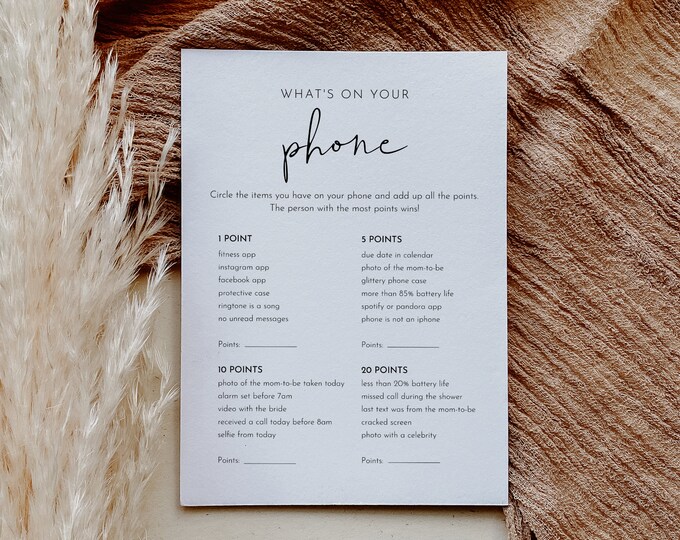 WHAT'S ON YOUR
phone
Circle the items you have on your phone and add up all the points.
The person with the most points wins!
1 POINT
fitness app
instagram app
facebook app
protective case
ringtone is a song
no unread messages
Points:
5 POINTS
due date in calendar
photo of the mom-to-be
glittery phone case
more than 85% battery life
spotify or pandora app
phone is not an iphone
Points:
10 POINTS
photo of the mom-to-be taken today
alarm set before 7am
video with the bride
received a call today before 8am
selfie from today
Points:
20 POINTS
less than 20% battery life
missed call during the shower
last text was from the mom-to-be
cracked screen
photo with a celebrity
Points: